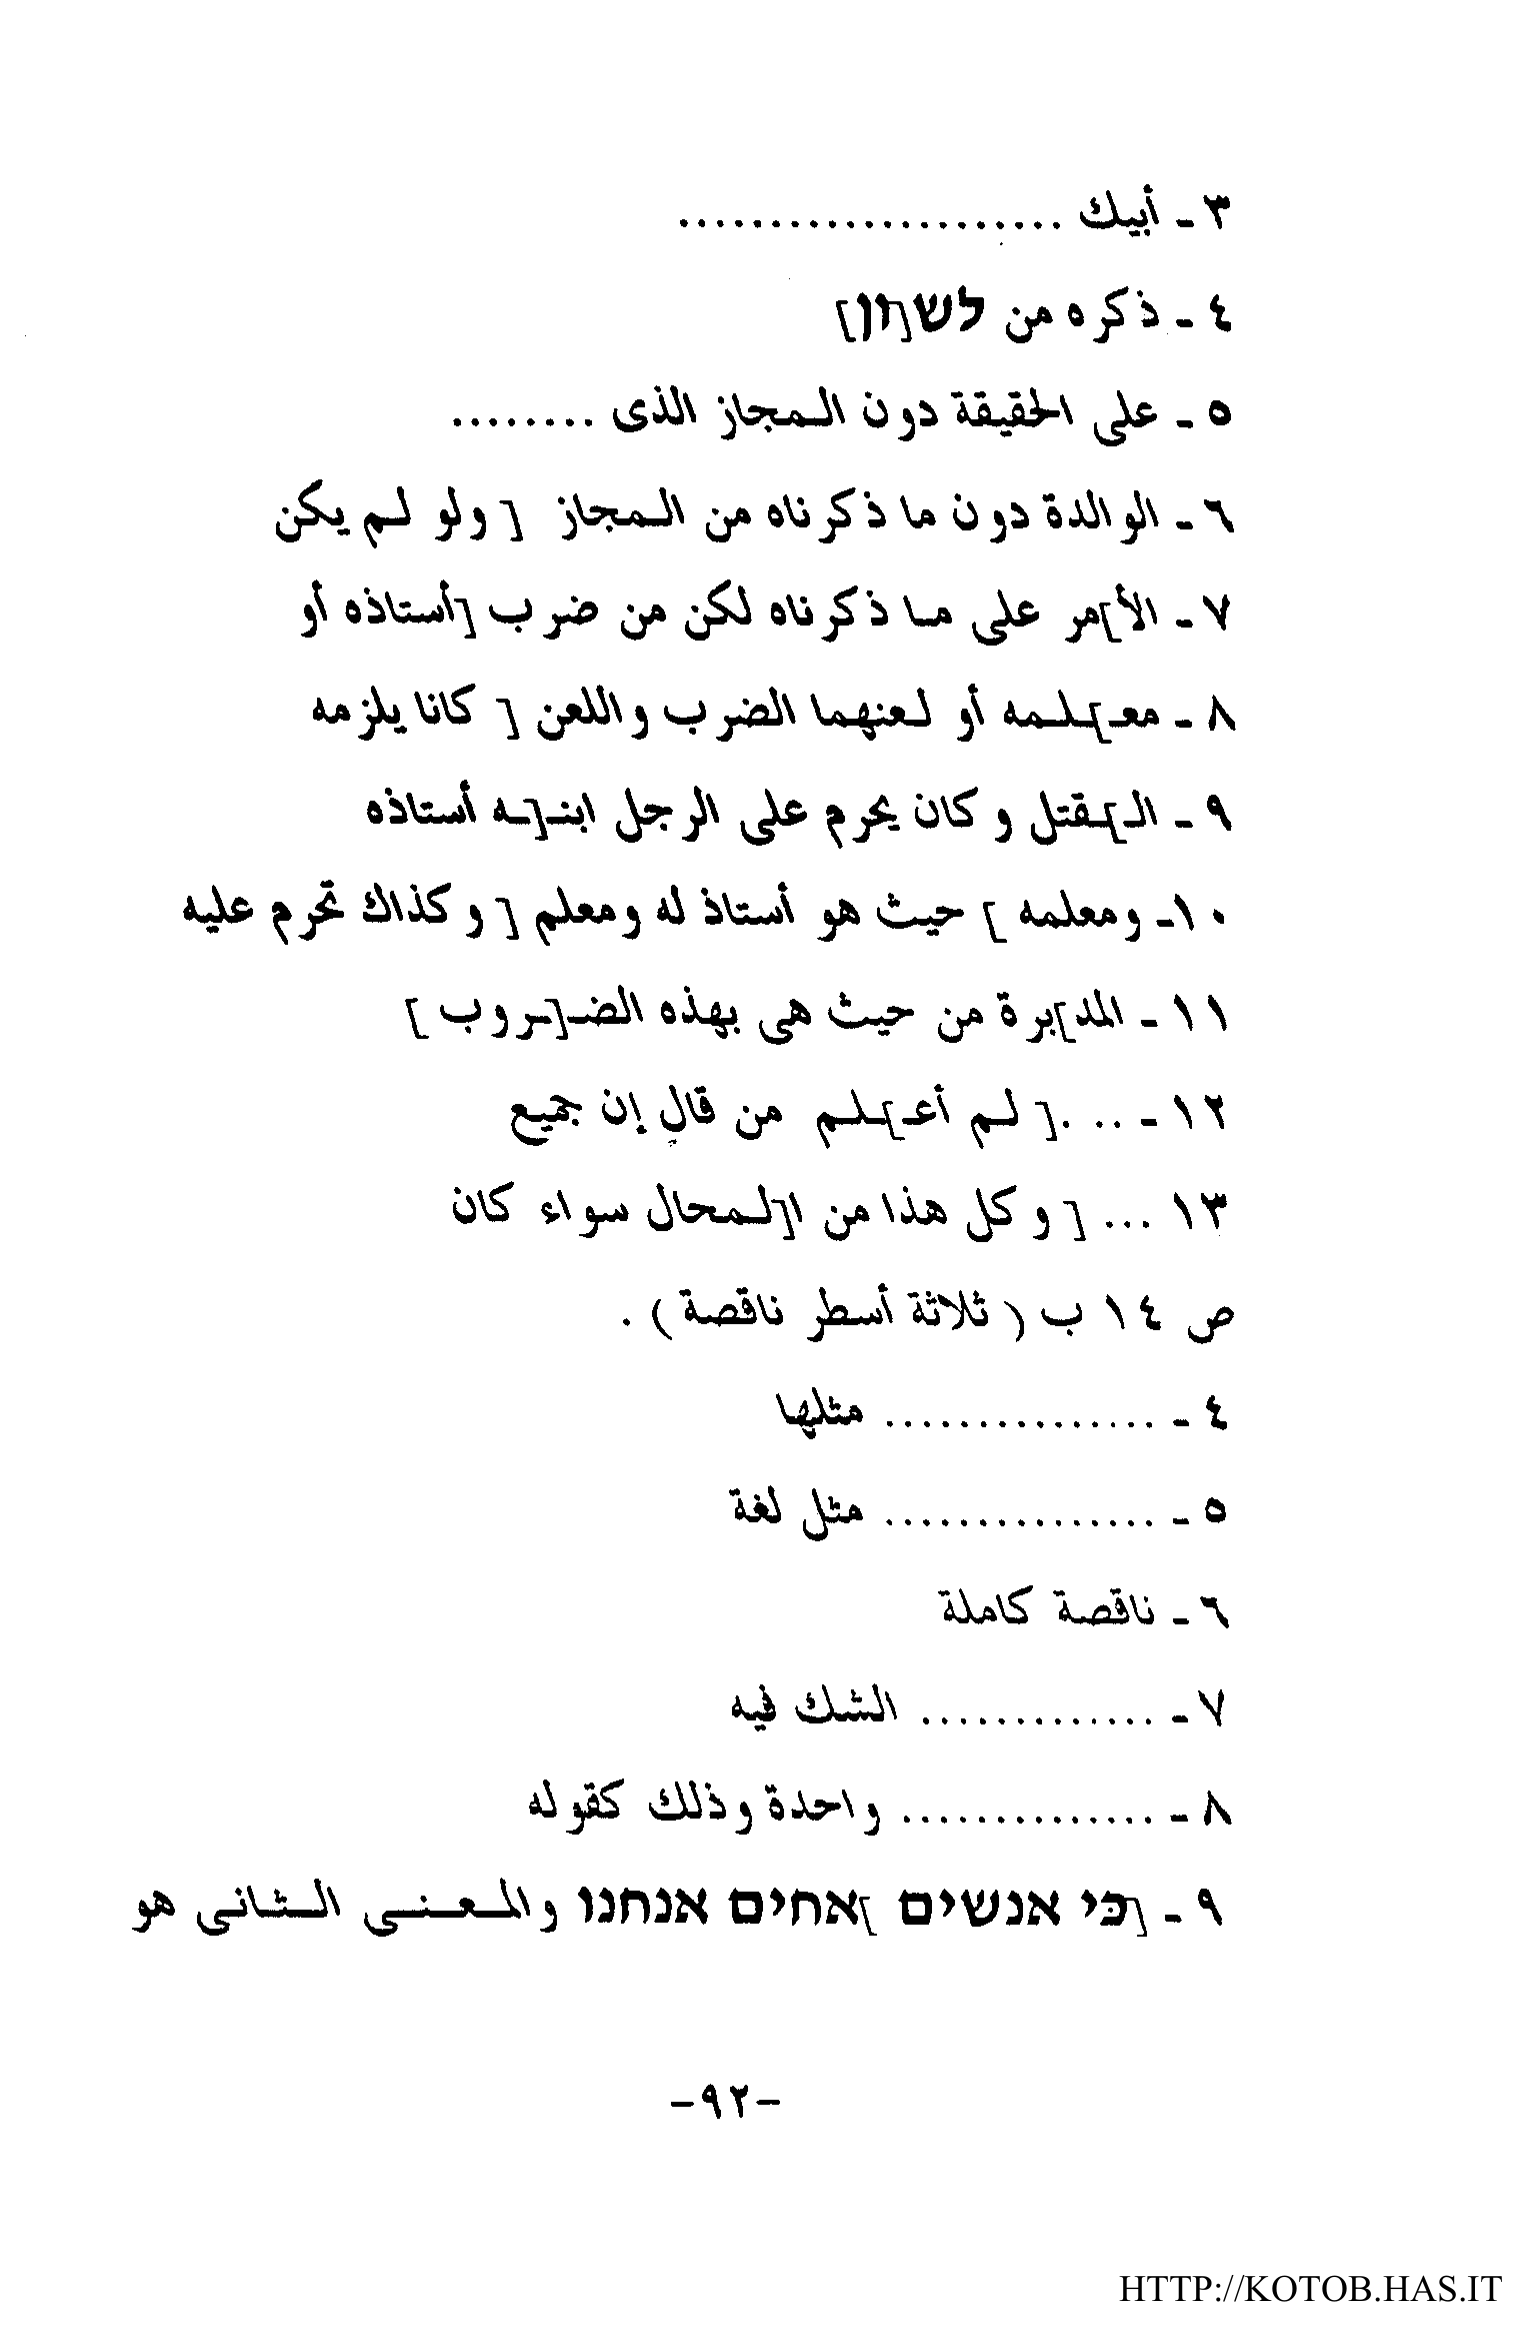 ٣ - أبيك .....................
٤ - ذكره من לש[ון]
٥ - على الحقيقة دون المجاز الذى ........
٦ - الوالدة دون ما ذكرناه من المجاز [ ولو لم يكن
٧ - الأ]مر على ما ذكرناه لكن من ضرب [أستاذه أو
٨ - معـ]ـلمه أو لعنهما الضرب واللعن [ كانا يلزمه
٩ - الـ]ـقتل وكان يحرم على الرجل ابنـ[ـه أستاذه
١٠- ومعلمه ] حيث هو أستاذ له ومعلم [ وكذاك تحرم عليه
١١ - المد]برة من حيث هى بهذه الضـ[ـروب ]
١٢ - .. .[ لم أعـ]ـلم من قال إن جميع
١٣ ... [ وكل هذا من ا]لمحال سواء كان
ص ١٤ ب ( ثلاثة أسطر ناقصة ) .
٤ - ............... مثلها
٥ - ............... مثل لغة
٦ - ناقصة كاملة
٧ - ............. الشك فيه
٨ - .............. واحدة وذلك كقوله
٩ - [כי אנשים ]אחים אנחנו والمعنى الثانى هو
-٩٢-
HTTP://KOTOB.HAS.IT